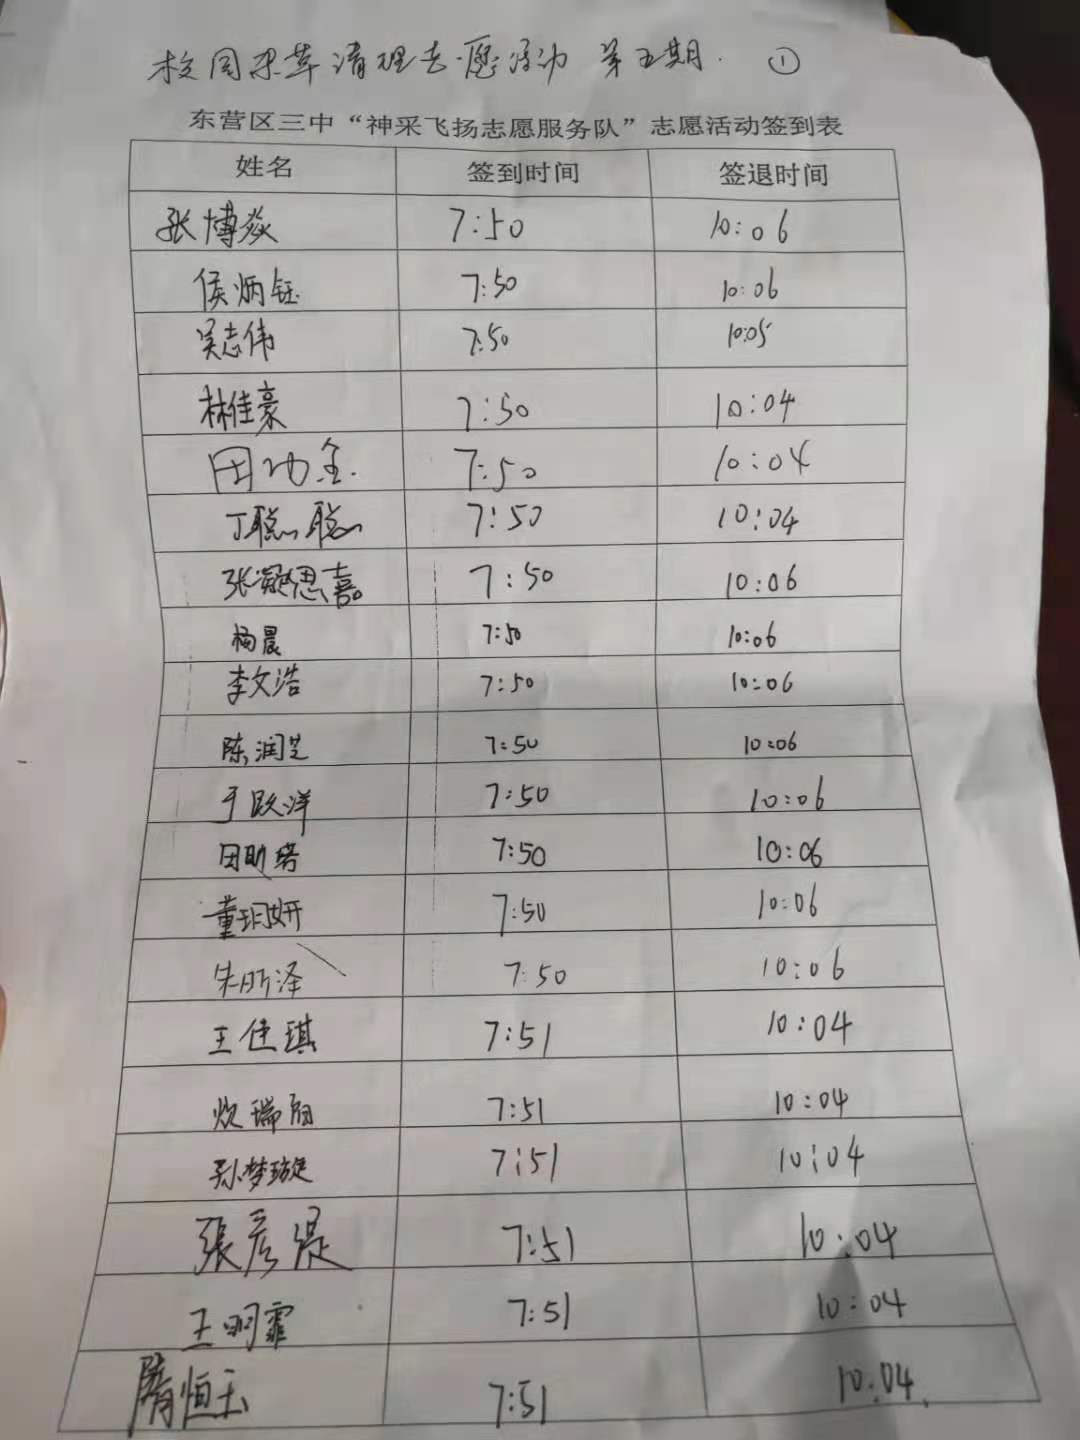 校园杂草清理志愿活动 第五期. ①
东营区三中“神采飞扬志愿服务队”志愿活动签到表
姓名 签到时间 签退时间
张博焱 7:50 10:06
侯炳钰 7:50 10:06
吴志伟 7:50 10:05
林佳豪 7:50 10:04
田功全 7:50 10:04
丁聪聪 7:50 10:04
张凝思嘉 7:50 10:06
杨晨 7:50 10:06
李文浩 7:50 10:06
陈润芝 7:50 10:06
于跃洋 7:50 10:06
田 7:50 10:06
董玥妍 7:50 10:06
朱所泽 7:50 10:06
王佳琪 7:51 10:04
瑞 7:51 10:04
孙梦璇 7:51 10:04
張彦湜 7:51 10:04
王明霏 7:51 10:04
隋恒玉 7:51 10:04